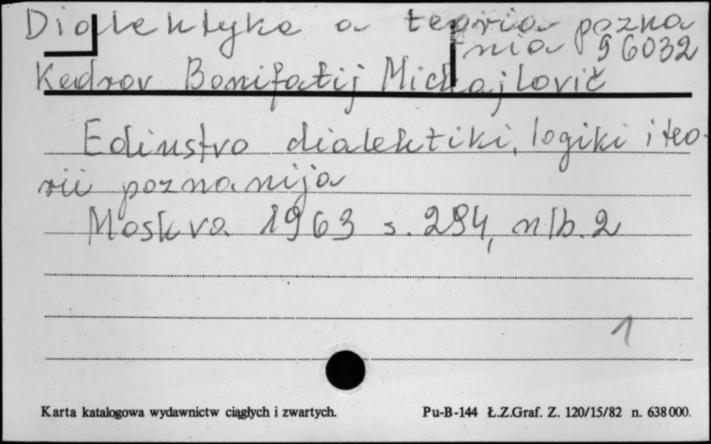 Dialektyka a teoria pozna
nia 96032
Kedrov Bonifatij Michajlovič
Edinstvo dialektiki, logiki i teo-
rii poznanija
Moskva 1963 s. 294, nlb. 2
1
Karta katalogowa wydawnictw ciągłych i zwartych. Pu-B-144 Ł.Z.Graf. Z. 120/15/82 n. 638000.